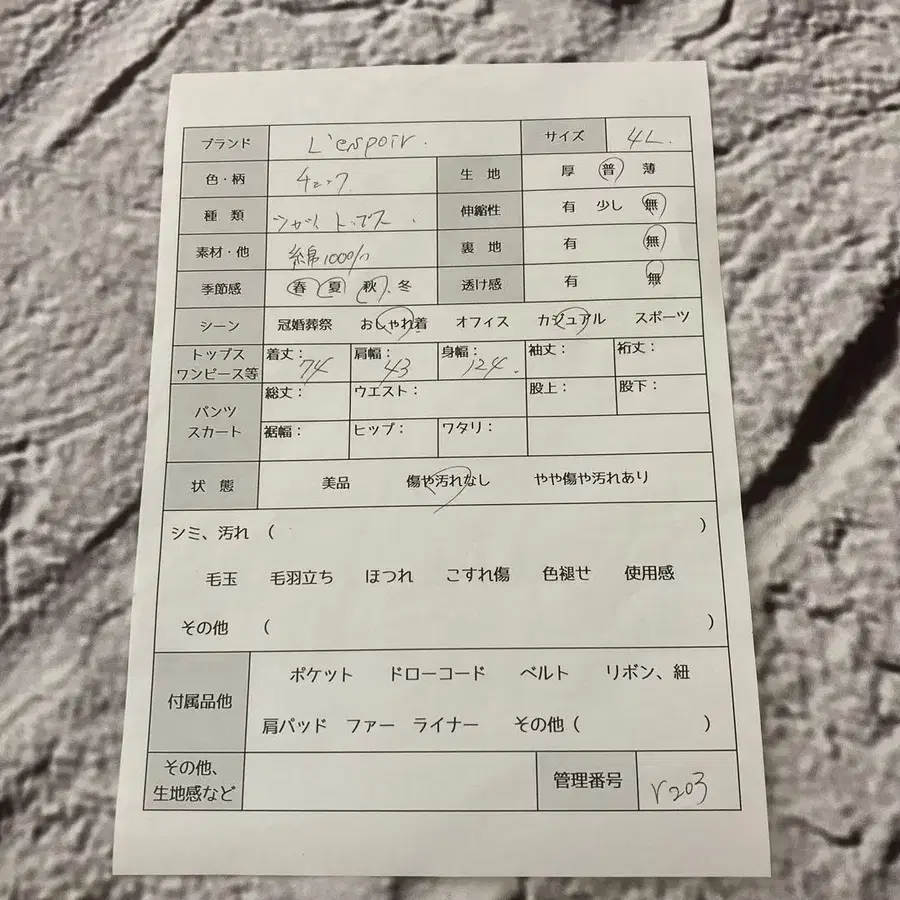 ブランド L'espoir. サイズ 4L.
色・柄 チェック 生 地 厚 普 薄
種 類 シャツ トップス. 伸縮性 有 少し 無
素材・他 綿100% 裏 地 有 無
季節感 春 夏 秋、冬 透け感 有 無
シーン 冠婚葬祭 おしゃれ着 オフィス カジュアル スポーツ
トップス 着丈: 74 肩幅: 43 身幅: 124. 袖丈: 裄丈:
ワンピース等
総丈: ウエスト: 股上: 股下:
パンツ
スカート
裾幅: ヒップ: ワタリ:
状 態 美品 傷や汚れなし やや傷や汚れあり
シミ、汚れ ( )
毛玉 毛羽立ち ほつれ こすれ傷 色褪せ 使用感
その他 ( )
付属品他 ポケット ドローコード ベルト リボン、紐
肩パッド ファー ライナー その他( )
その他、
生地感など 管理番号 r203